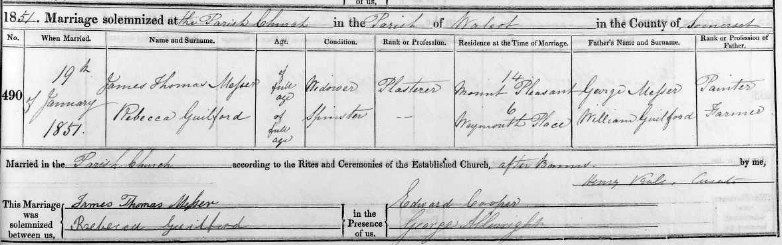 of us,
1851. Marriage solemnized at the Parish Church in the Parish of Walcot in the County of Somerset
No. When Married. Name and Surname. Age. Condition. Rank or Profession. Residence at the Time of Marriage. Father's Name and Surname. Rank or Profession of Father.
490 19th of January 1851. James Thomas Messer of full age Widower Plasterer 14 Mount Pleasant George Messer Painter
Rebecca Guilford of full age Spinster — 6 Weymouth Place William Guilford Farmer
Married in the Parish Church according to the Rites and Ceremonies of the Established Church, after Banns by me,
Henry Curate
This Marriage was solemnized between us, James Thomas Messer Rebecca Guilford in the Presence of us, Edward Cooper George